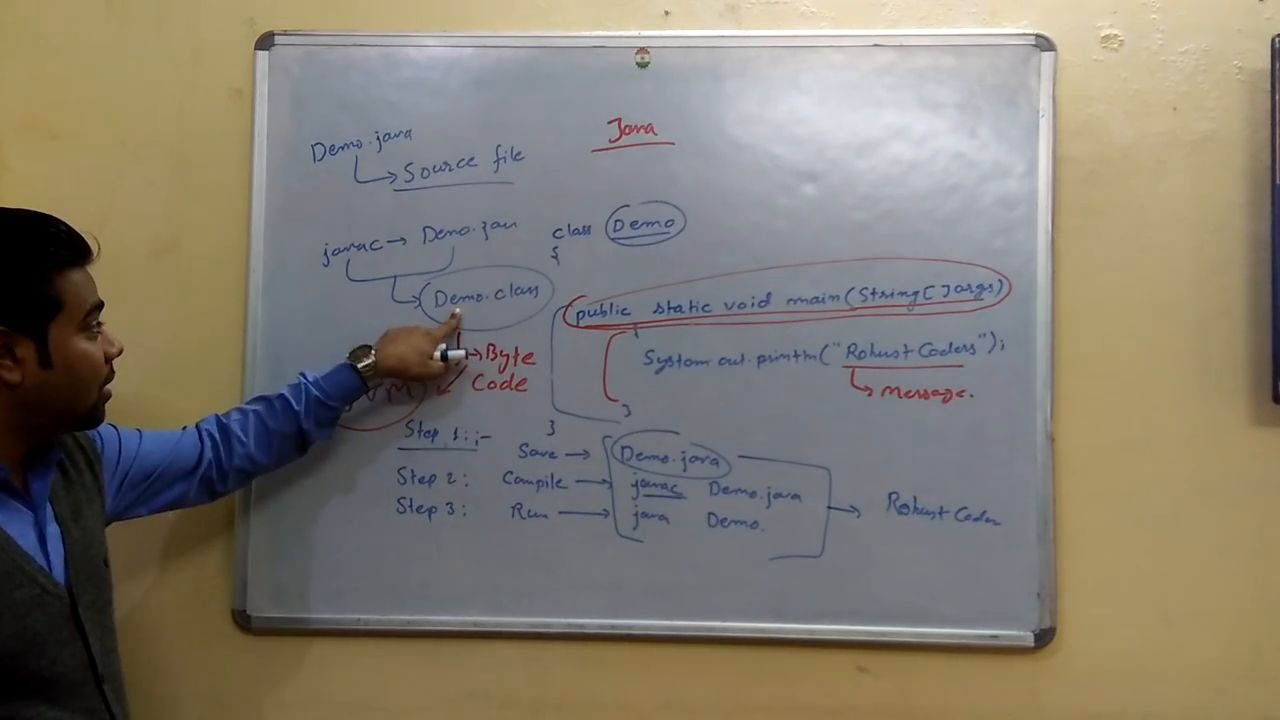 Java
Demo.java
Source file
javac → Demo.java
Demo.class
→ Byte
Code
JVM
class Demo
{
public static void main(String[]args)
{
System.out.println("Robust Coders");
message.
}
}
Step 1:- Save → Demo.java
Step 2: Compile → javac Demo.java
Step 3: Run → java Demo.
→ Robust Coder